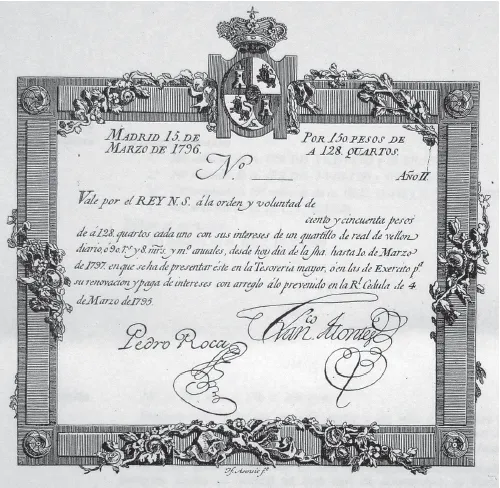 MADRID 15. DE
MARZO DE 1796.
POR 150 PESOS DE
A 128. QUARTOS.
Nº
AÑO II
Vale por el REY N.S. á la orden y voluntad de
ciento y cincuenta pesos
de á 128. quartos cada uno con sus intereses de un quartillo de real de vellon
diario, ó 90. rs. y 8. mrs. y mº anuales, desde hoy dia de la fha hasta 10. de Marzo
de 1797. en que se ha de presentar éste en la Tesoreria mayor, ó en las de Exercito pª
su renovacion y paga de intereses con arreglo á lo prevenido en la Rl. Cédula de 4
de Marzo de 1795.
Pedro Roca
Franco Montes